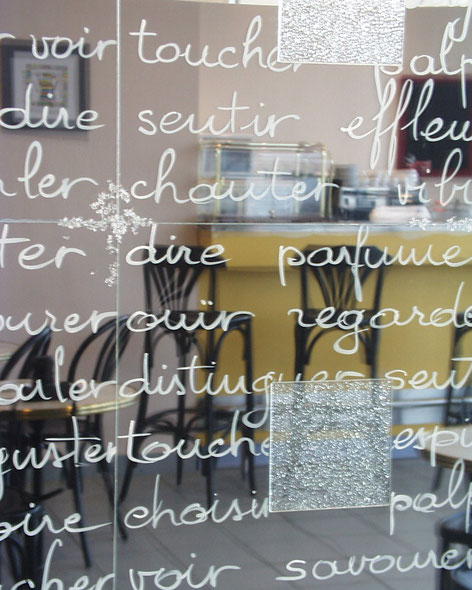 r voir toucher palp
dire sentir effleu
ler chanter vib
ter dire parfume
ourer ouïr regarde
ouler distinguer sent
guster touche espi
oire choisi palp
ucher voir savourer